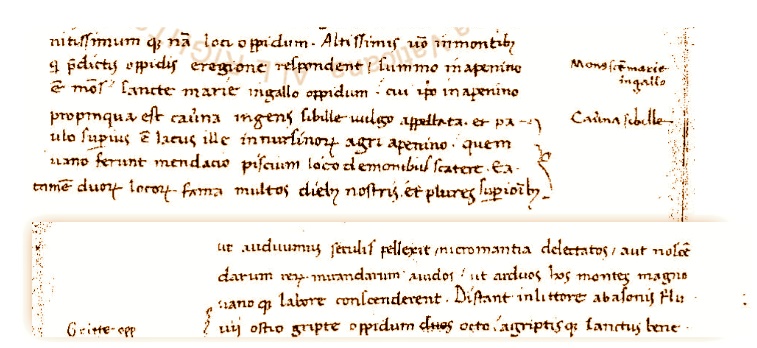 nitissimum q; nã loci oppidum. Altissimis uõ in montib;
q p̃dictis oppidis e regione respondent / summo in apenino
Mons scẽ marie
in gallo
ẽ mõs sancte marie in gallo oppidum . cui ip̃o in apenino
propinqua est cau̾na ingens sibille uulgo appellata. et pa-
Cau̾na sibille
ulo superius ẽ lacus ille in nursinorꝝ agri apenino . quem
uano ferunt mendacio piscium loco demonibus scatere. Ea.
tamẽ duorꝝ locorꝝ fama multos dieb; nostris. et plures superiorib;
ut audiuimus seculis pellexit nicromantia delectatos / aut noscẽ
darum rerꝝ mirandarum auidos / ut arduos hos montes magno
uano q; labore conscenderent. Distant in littore ab asonis Flu
Gritte opp
uij ostio gripte oppidum duos octo. agriptis q; sanctus bene .